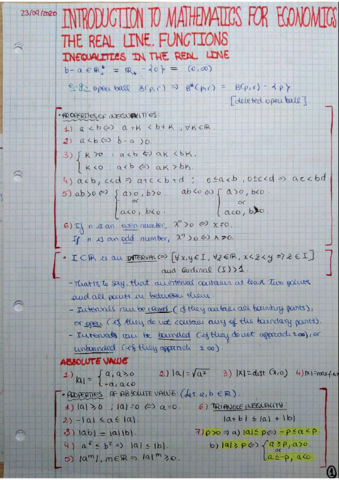 23/09/2020
INTRODUCTION TO MATHEMATICS FOR ECONOMICS
THE REAL LINE. FUNCTIONS
INEQUALITIES IN THE REAL LINE
open ball B(p,r) => B*(p,r) = B(p,r) - {p}
[deleted open ball]
· PROPERTIES OF INEQUALITIES
1) a < b <=> a+k < b+k, ∀k∈ℝ
2) a < b <=> b-a > 0.
3) { k > 0 : a < b <=> ak < bk.
k < 0 : a < b <=> ak > bk.
4) a<b, c<d => a+c < b+d ; 0≤a<b, 0≤c<d => ac<bd
5) ab>0 <=> { a>0, b>0. or a<0, b<0. ab<0 <=> { a>0, b<0. or a<0, b>0
6) If n is an even number, xⁿ>0 <=> x≠0.
If n is an odd number, xⁿ>0 <=> x>0.
· I⊂ℝ is an INTERVAL <=> [∀x,y∈I, ∀z∈ℝ, x<z<y => z∈I]
and Cardinal (I)>1
- That is to say, that an interval contains at least two points
and all points in between them
- Intervals can be closed (if they contain all boundary points),
or open (if they do not contain any of the boundary points).
- Intervals can be bounded (if they do not approach ±∞), or
unbounded (if they approach ±∞)
ABSOLUTE VALUE
1) |a| = { a, a≥0 -a, a<0 2) |a| = √a² 3) |a| = dist (a,0)
· PROPERTIES OF ABSOLUTE VALUE (Let a, b ∈ ℝ).
1) |a| ≥ 0 ; |a| = 0 <=> a = 0. 6) TRIANGLE INEQUALITY
2) -|a| ≤ a ≤ |a|. |a+b| ≤ |a| + |b|
3) |ab| = |a||b|. 7) p>0 => a) |a|≤p <=> -p≤a≤p
4) a² ≤ b² <=> |a| ≤ |b|. b) |a|≥p <=> { a≥p, a>0. or a≤-p, a<0
1